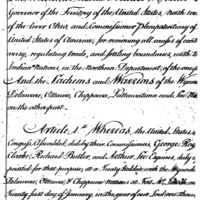 Governor of the Territory of the United States, North-west
of the River Ohio, and Commissioner Plenipotentiary of the
United States of America, for removing all causes of contro
versy, regulating trade, and settling boundaries, with the
Indian Nations, in the Northern Department, of the one part
And the Sachems and Warriors of the Wyandot
Delaware, Ottawa, Chippewa, Pattawattima and Sac Na
on the other part.
Article 1st Whereas, the United States in
Congress Assembled, did by their Commissioners, George Rog
Clarke, Richard Butler, and Arthur Lee Esquires, duly a
pointed for that purpose, at a Treaty holden with the Wyandot
Delaware, Ottawa, & Chippewa Nations at Fort McIntosh on
Twenty first day of January, in the year of our Lord one thou